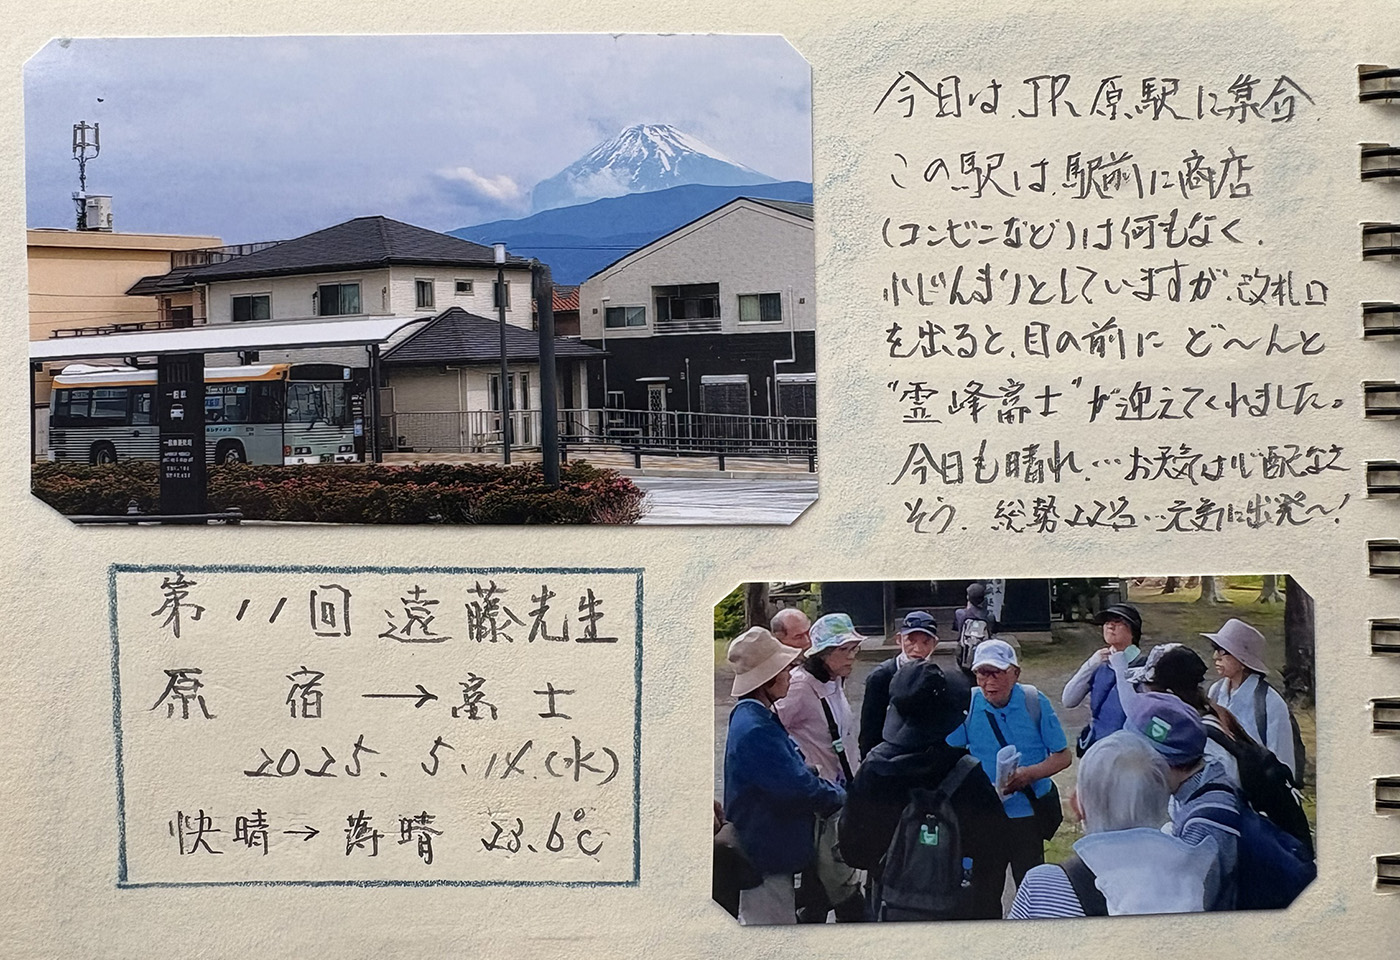 今日は、JR、原駅に集合、
この駅は、駅前に商店
(コンビニなど)は何もなく、
小じんまりとしていますが、改札口
を出ると、目の前に ど〜んと
“霊峰富士”が迎えてくれました。
今日も晴れ、…お天気は心配なさ
そう、総勢22名…元気に出発〜!
第11回 遠藤先生
原 宿 → 富 士
2025. 5. 14.(水)
快晴→ 薄晴 23.6℃